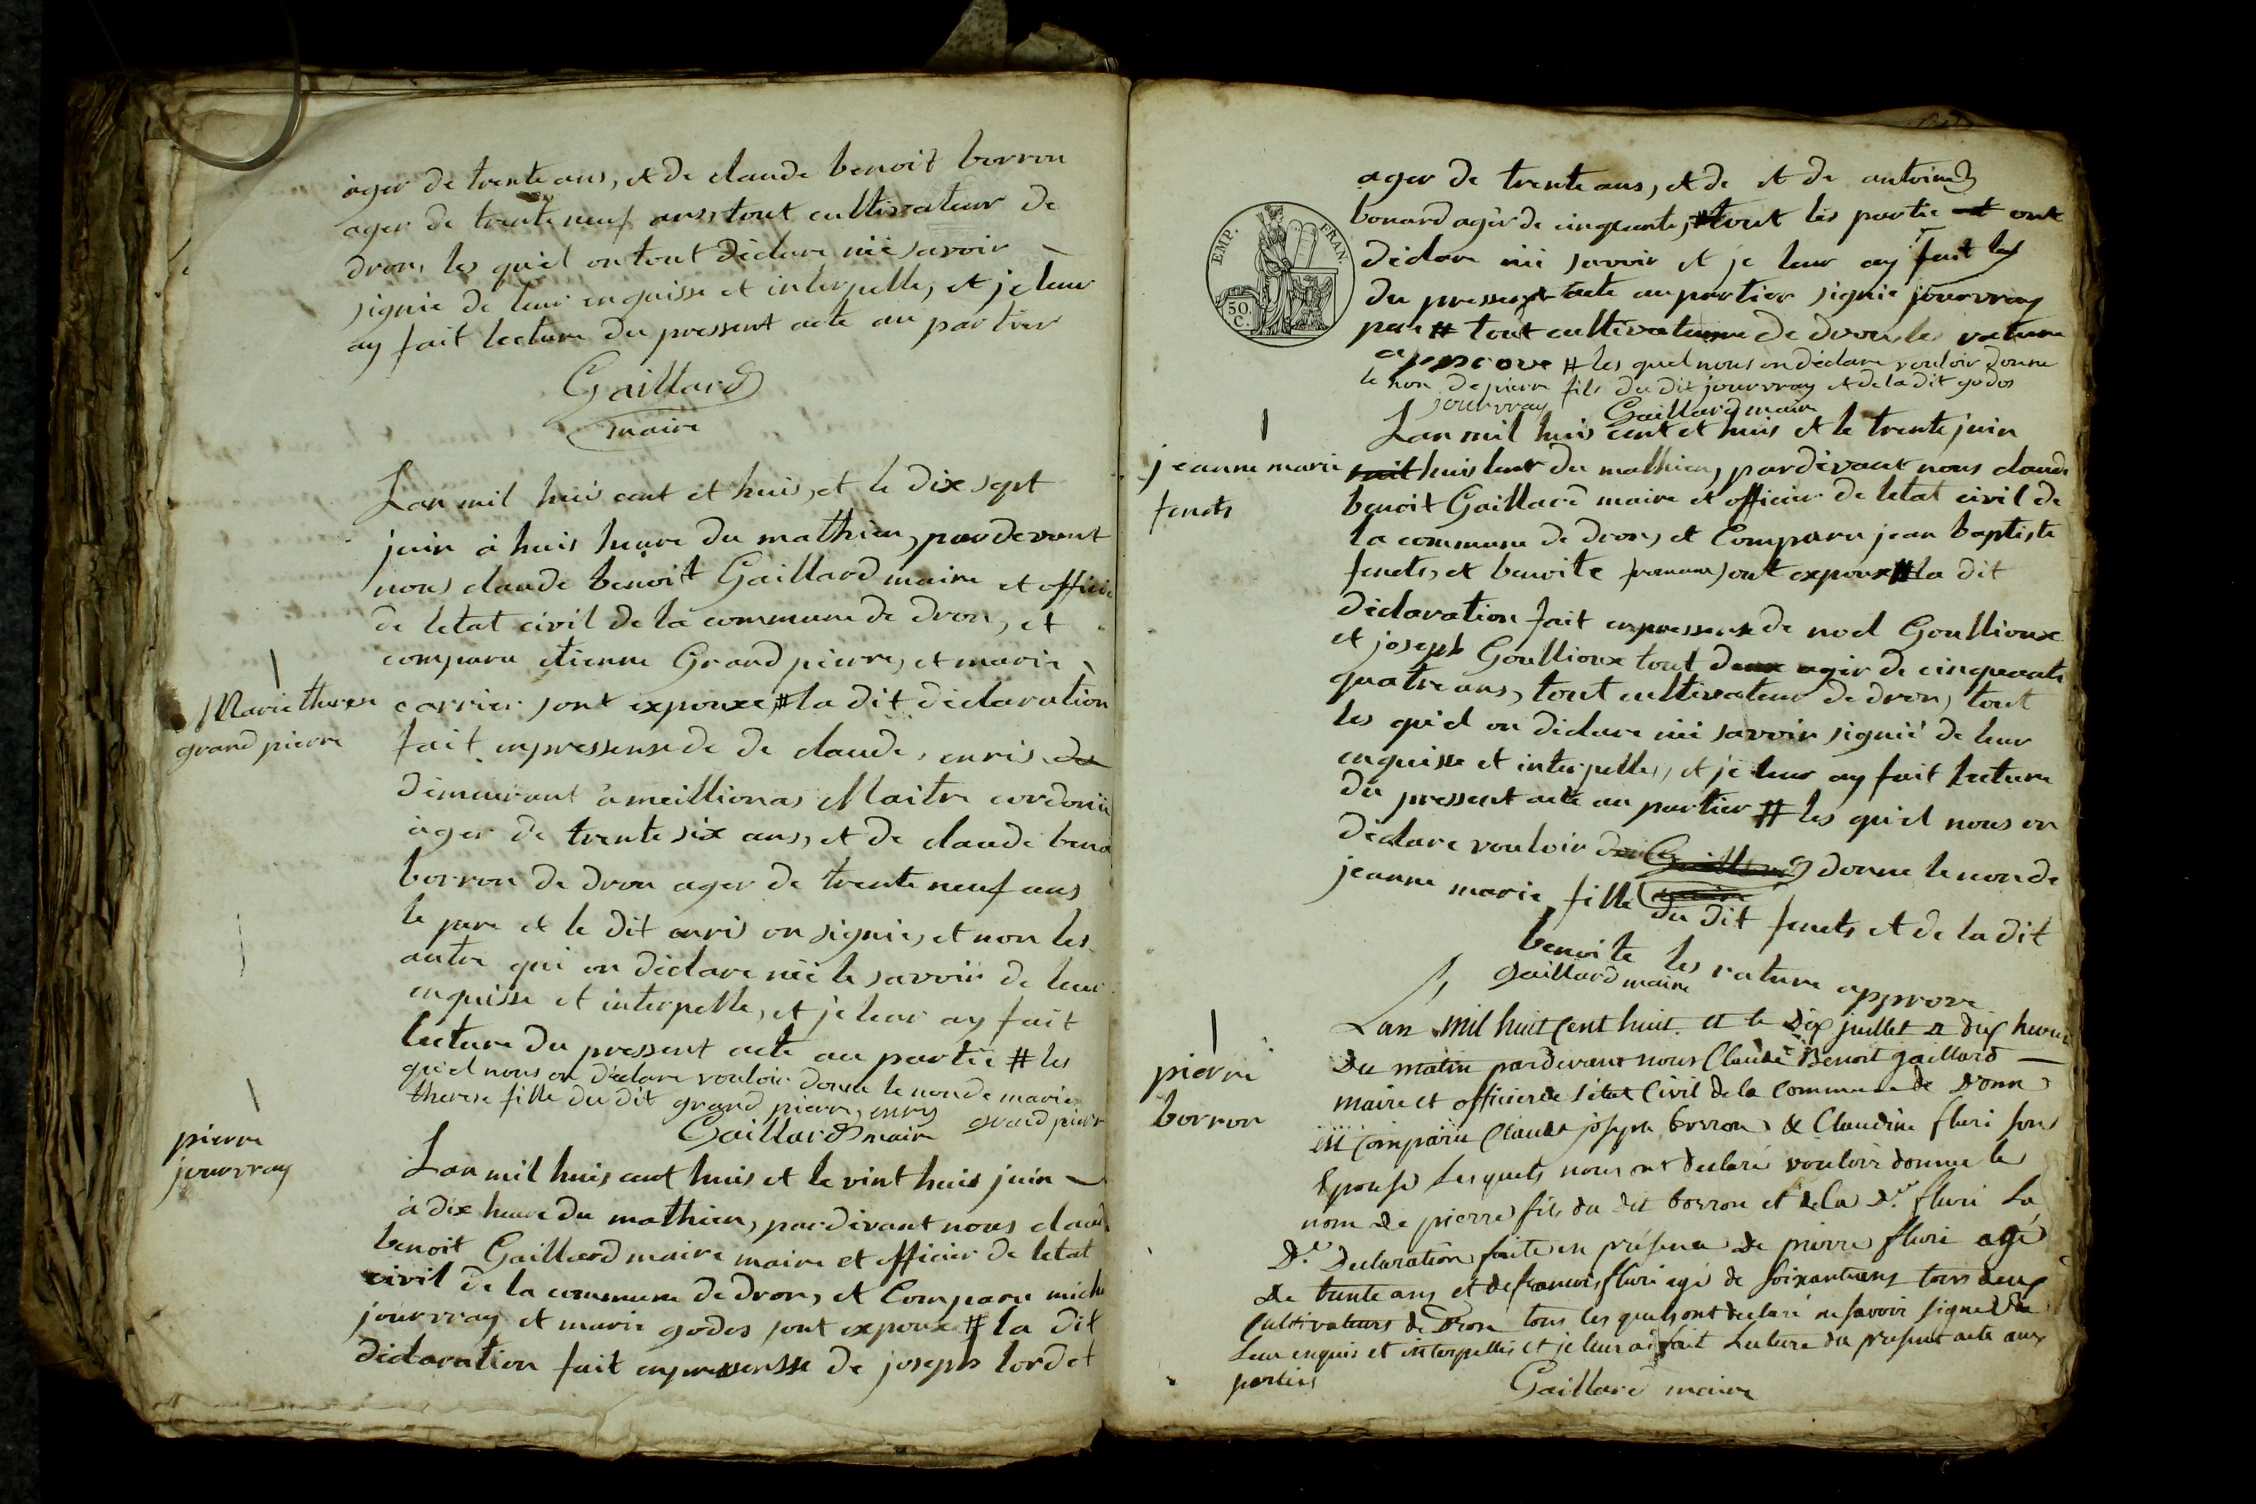 ager de trente ans, et de claude benoit borron
ager de trente neuf ans, tout cultivateur de
dron, les quel on tout déclare niè savoir
signie de leur enquisse et interpelle, et je leur
ay fait lecture du pressent acte au partier
Gaillard
maire
Lan mil huis cent et huis, et le dix sept
juin à huis heure du mathieu, pardevent
nous claude benoit Gaillard maire et officie
de letat civil de la commune de dron, et
comparu etienne Grand pierre, et marie
Marie therese
grand pierre
carrier sont expouxe # la dit déclaration
fait enpressense de de claude enris de
demeurant à meillionas Maitre cordonie
àger de trente six ans, et de claude beno
borron de dron ager de trente neuf ans
le pere et le dit enris on signie, et non les
autre qui on déclare niè le savoir de leur
enquisse et interpelle, et je leur ay fait
lecture du pressent acte au partie # les
quel nous on déclare vouloir donne le non de marie
therese fille du dit grand pierre, enry grand pierr
Gaillard maire
pierre
jourvray
Lan mil huis cent huis et le vint huis juin
à dix heure du mathieu, pardivant nous claud
benoit Gaillard maire maire et officier de letat
civil de la commune de dron, et Comparu miche
jourvray et marie godos sont expouxe # la dit
déclaration fait enpressensse de joseph lordet
ager de trente ans, et de et de antoine
bonard agér de cinquante, # tout les partie et ont
déclare niè savoir et je leur ay fait les
du pressent acte au partier signie jourvray
par # tout cultivateure de dron les rature
approve # les quel nous on déclare vouloir donne
le non de pierre fils du dit jourvray et de la dit godos
jourvray Gaillard maire
EMP. FRAN.
50
C.
Lan mil huis cent et huis et le trente juin
jeanne marie
fenets
huis heur du mathieu, pardivant nous claude
benoit Gaillard maire et officier de letat civil de
la commune de dron, et Comparu jean baptiste
fenets, et benoite sont expoux # la dit
déclaration fait enpressense de noel Goullioux
et joseph Goullioux tout deux agir de cinquante
quatre ans, tout cultivateur de dron, tout
les quel on diclare niè savoir signié de leur
enquisse et interpelle, et je leur ay fait lecture
du pressent acte au partier # les quel nous on
déclare vouloir Gaillard donne le non de
jeanne marie fille maire du dit fenets et de la dit
benoite les rature approve
Gaillard maire
pierre
borron
Lan mil huit Cent huit. et le Dix juillet a dix heures
Du matin pardevant nous Claude Benoit gaillard
maire et officier de l'état Civil de la Commune de Dron
est Comparu Claude joseph borron & Claudine fluri son
Epouse Lesquels nous ont declaré vouloir donner le
nom de pierre fils du dit borron et de la De. fluri La
De. Declaration faite en présence de pierre fluri agé
de trente ans et de francois fluri agé de soixante ans tous deux
Cultivateurs de Dron tous les quels ont declaré ne savoir signer de
Leur enquis et interpellés et je leur ai fait Lecture du present acte aux
parties
Gaillard maire